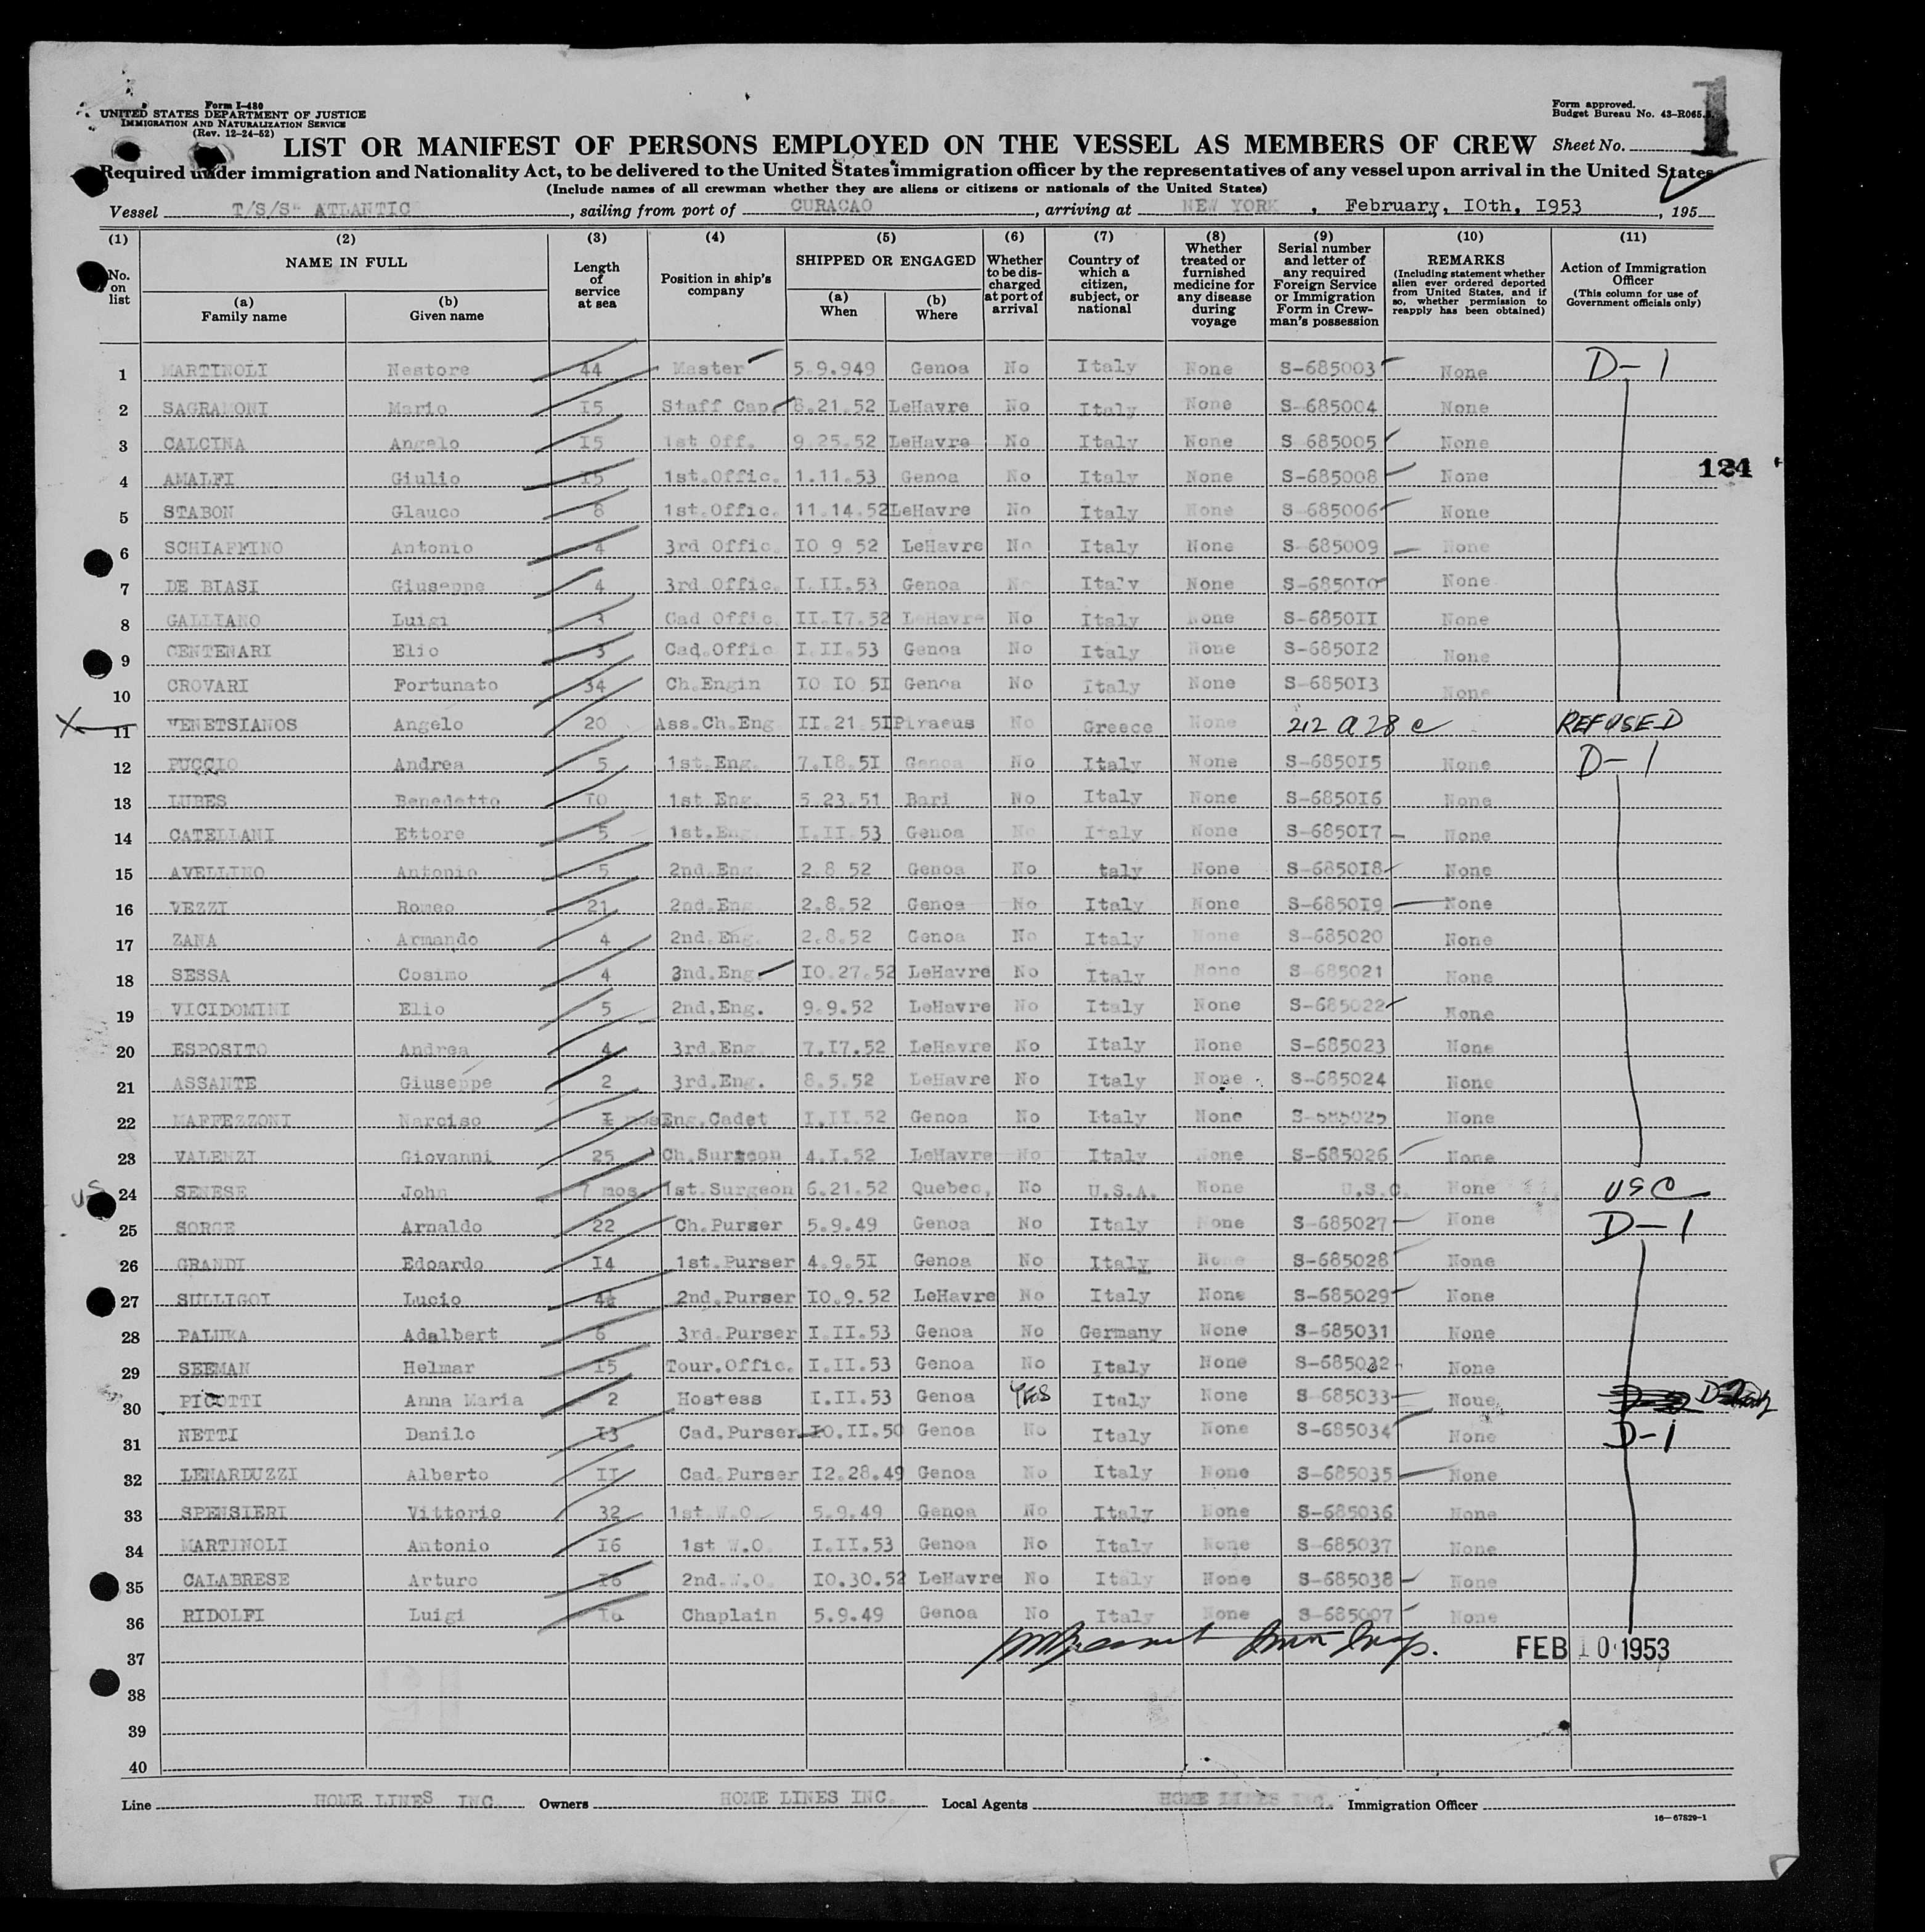 Form I-480
UNITED STATES DEPARTMENT OF JUSTICE
IMMIGRATION AND NATURALIZATION SERVICE
(Rev. 12-24-52)
Form approved.
Budget Bureau No. 43-R065.
LIST OR MANIFEST OF PERSONS EMPLOYED ON THE VESSEL AS MEMBERS OF CREW Sheet No. 1
Required under immigration and Nationality Act, to be delivered to the United States immigration officer by the representatives of any vessel upon arrival in the United States
(Include names of all crewman whether they are aliens or citizens or nationals of the United States)
Vessel T/S/S" ATLANTIC, sailing from port of CURACAO, arriving at NEW YORK, February, IOth, I953, 195
(1) No. on list
(2) NAME IN FULL (a) Family name (b) Given name
(3) Length of service at sea
(4) Position in ship's company
(5) SHIPPED OR ENGAGED (a) When (b) Where
(6) Whether to be discharged at port of arrival
(7) Country of which a citizen, subject, or national
(8) Whether treated or furnished medicine for any disease during voyage
(9) Serial number and letter of any required Foreign Service or Immigration Form in Crewman's possession
(10) REMARKS (Including statement whether alien ever ordered deported from United States, and if so, whether permission to reapply has been obtained)
(11) Action of Immigration Officer (This column for use of Government officials only)
1 MARTINOLI Nestore 44 Master 5.9.949 Genoa No Italy None S-685003 None D-1
2 SAGRAMONI Mario I5 Staff Cap. 8.21.52 LeHavre No Italy None S-685004 None
3 CALCINA Angelo I5 1st Off. 9.25.52 LeHavre No Italy None S-685005 None
124
4 AMALFI Giulio I5 1st.Offic. 1.11.53 Genoa No Italy None S-685008 None
5 STABON Glauco 8 1st.Offic. 11.14.52 LeHavre No Italy None S-685006 None
6 SCHIAFFINO Antonio 4 3rd Offic. IO 9 52 LeHavre No Italy None S-685009 None
7 DE BIASI Giuseppe 4 3rd.Offic. I.II.53 Genoa No Italy None S-685OIO None
8 GALLIANO Luigi 3 Cad Offic. II.I7.52 LeHavre No Italy None S-685OII None
9 CENTENARI Elio 3 Cad.Offic I.II.53 Genoa No Italy None S-685OI2 None
10 CROVARI Fortunato 34 Ch.Engin IO IO 5I Genoa No Italy None S-685OI3 None
11 VENETSIANOS Angelo 20 Ass.Ch.Eng II.21.5I Piraeus No Greece None 212 a 28 c REFUSED
12 PUCCIO Andrea 5 1st.Eng. 7.I8.5I Genoa No Italy None S-685OI5 None D-1
13 LUBES Benedetto IO 1st.Eng. 5.23.51 Bari No Italy None S-685OI6 None
14 CATELLANI Ettore 5 1st.Eng I.II.53 Genoa No Italy None S-685OI7 None
15 AVELLINO Antonio 5 2nd.Eng. 2.8 52 Genoa No taly None S-685OI8 None
16 VEZZI Romeo 21 2nd.Eng 2.8.52 Genoa No Italy None S-685OI9 None
17 ZANA Armando 4 2nd.Eng. 2.8.52 Genoa No Italy None S-685020 None
18 SESSA Cosimo 4 3nd.Eng. IO.27.52 LeHavre No Italy None S 685021 None
19 VICIDOMINI Elio 5 2nd.Eng. 9.9.52 LeHavre No Italy None S-685022 None
20 ESPOSITO Andrea 4 3rd.Eng. 7.I7.52 LeHavre No Italy None S-685023 None
21 ASSANTE Giuseppe 2 3rd.Eng. 8.5.52 LeHavre No Italy None S-685024 None
22 MAFFEZZONI Narciso I mos Eng.Cadet I.II.52 Genoa No Italy None S-685025 None
23 VALENZI Giovanni 25 Ch.Surgeon 4.I.52 LeHavre No Italy None S-685026 None
US 24 SENESE John 7 mos. 1st.Surgeon 6.21.52 Quebec, No U.S.A. None U.S.C. None USC
25 SORGE Arnaldo 22 Ch.Purser 5.9.49 Genoa No Italy None S-685027 None D-1
26 GRANDI Edoardo I4 1st.Purser 4.9.5I Genoa No Italy None S-685028 None
27 SULLIGOI Lucio 2nd.Purser IO.9.52 LeHavre No Italy None S-685029 None
28 PALUKA Adalbert 6 3rd.Purser I.II.53 Genoa No Germany None S-685031 None
29 SEEMAN Helmar I5 Tour.Offic. I.II.53 Genoa No Italy None S-685032 None
30 PICOTTI Anna Maria 2 Hostess I.II.53 Genoa YES Italy None S-685033 None
31 NETTI Danilo I3 Cad.Purser IO.II.50 Genoa No Italy None S-685034 None D-1
32 LENARDUZZI Alberto II Cad.Purser I2.28.49 Genoa No Italy None S-685035 None
33 SPENSIERI Vittorio 32 1st.W.O. 5.9.49 Genoa No Italy None S-685036 None
34 MARTINOLI Antonio I6 1st W.O. I.II.53 Genoa No Italy None S-685037 None
35 CALABRESE Arturo I6 2nd.W.O. IO.30.52 LeHavre No Italy None S-685038 None
36 RIDOLFI Luigi Chaplain 5.9.49 Genoa No Italy None S-685007 None
37 FEB 10 1953
38
39
40
Line HOME LINES INC. Owners HOME LINES INC. Local Agents HOME LINES INC. Immigration Officer
16-67829-1